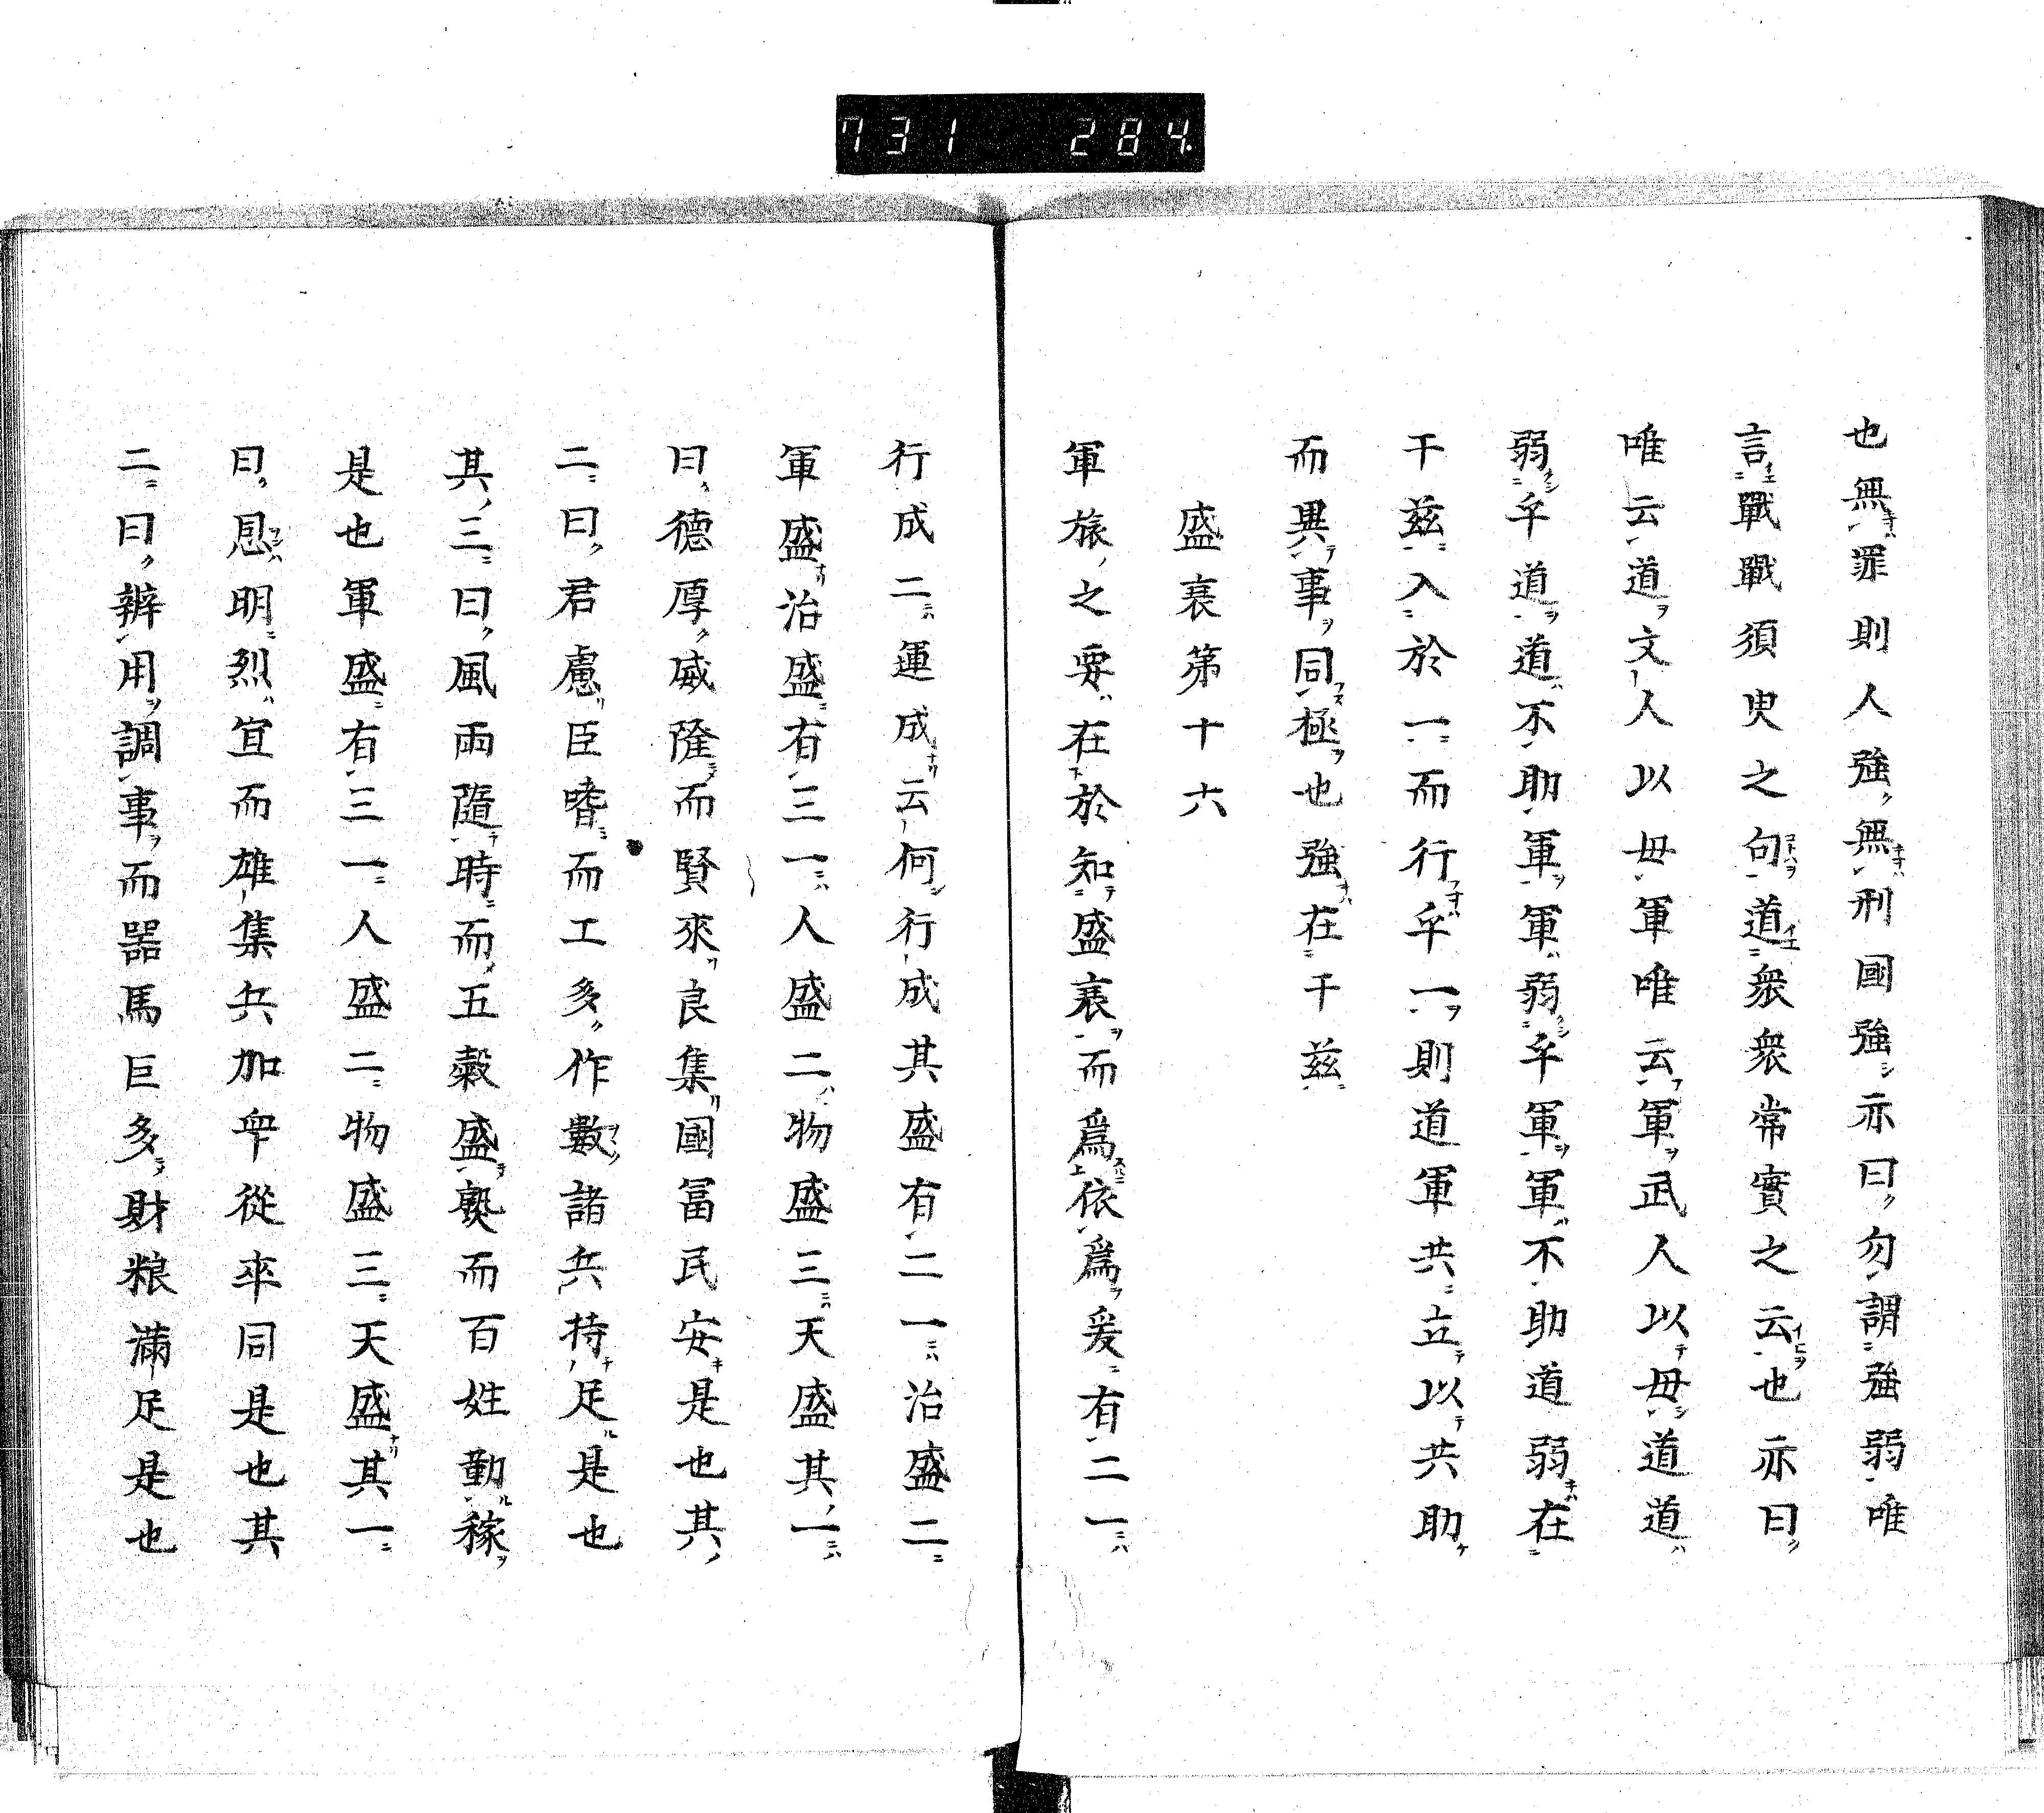 731 284
也無罪則人強無刑國強亦曰勿謂強弱唯
言戰戰須臾之句道衆衆常實之云也亦曰
唯云道文人以毋軍唯云軍武人以毋道道
弱乎道道不助軍軍弱乎軍軍不助道弱在
于茲入於一而行乎一則道軍共立以共助
而異事同極也強在于茲
盛衰第十六
軍旅之要在於知盛衰而爲依爲爰有二一
行成二運成云何行成其盛有二一治盛二
軍盛治盛有三一人盛二物盛三天盛其一
曰德厚威隆而賢來良集國冨民安是也其
二曰君慮臣嗜而工多作數諸兵持足是也
其三曰風雨隨時而五穀盛熟而百姓勤稼
是也軍盛有三一人盛二物盛三天盛其一
曰恩明烈宜而雄集兵加卒從率同是也其
二曰辨用調事而器馬巨多財粮滿足是也